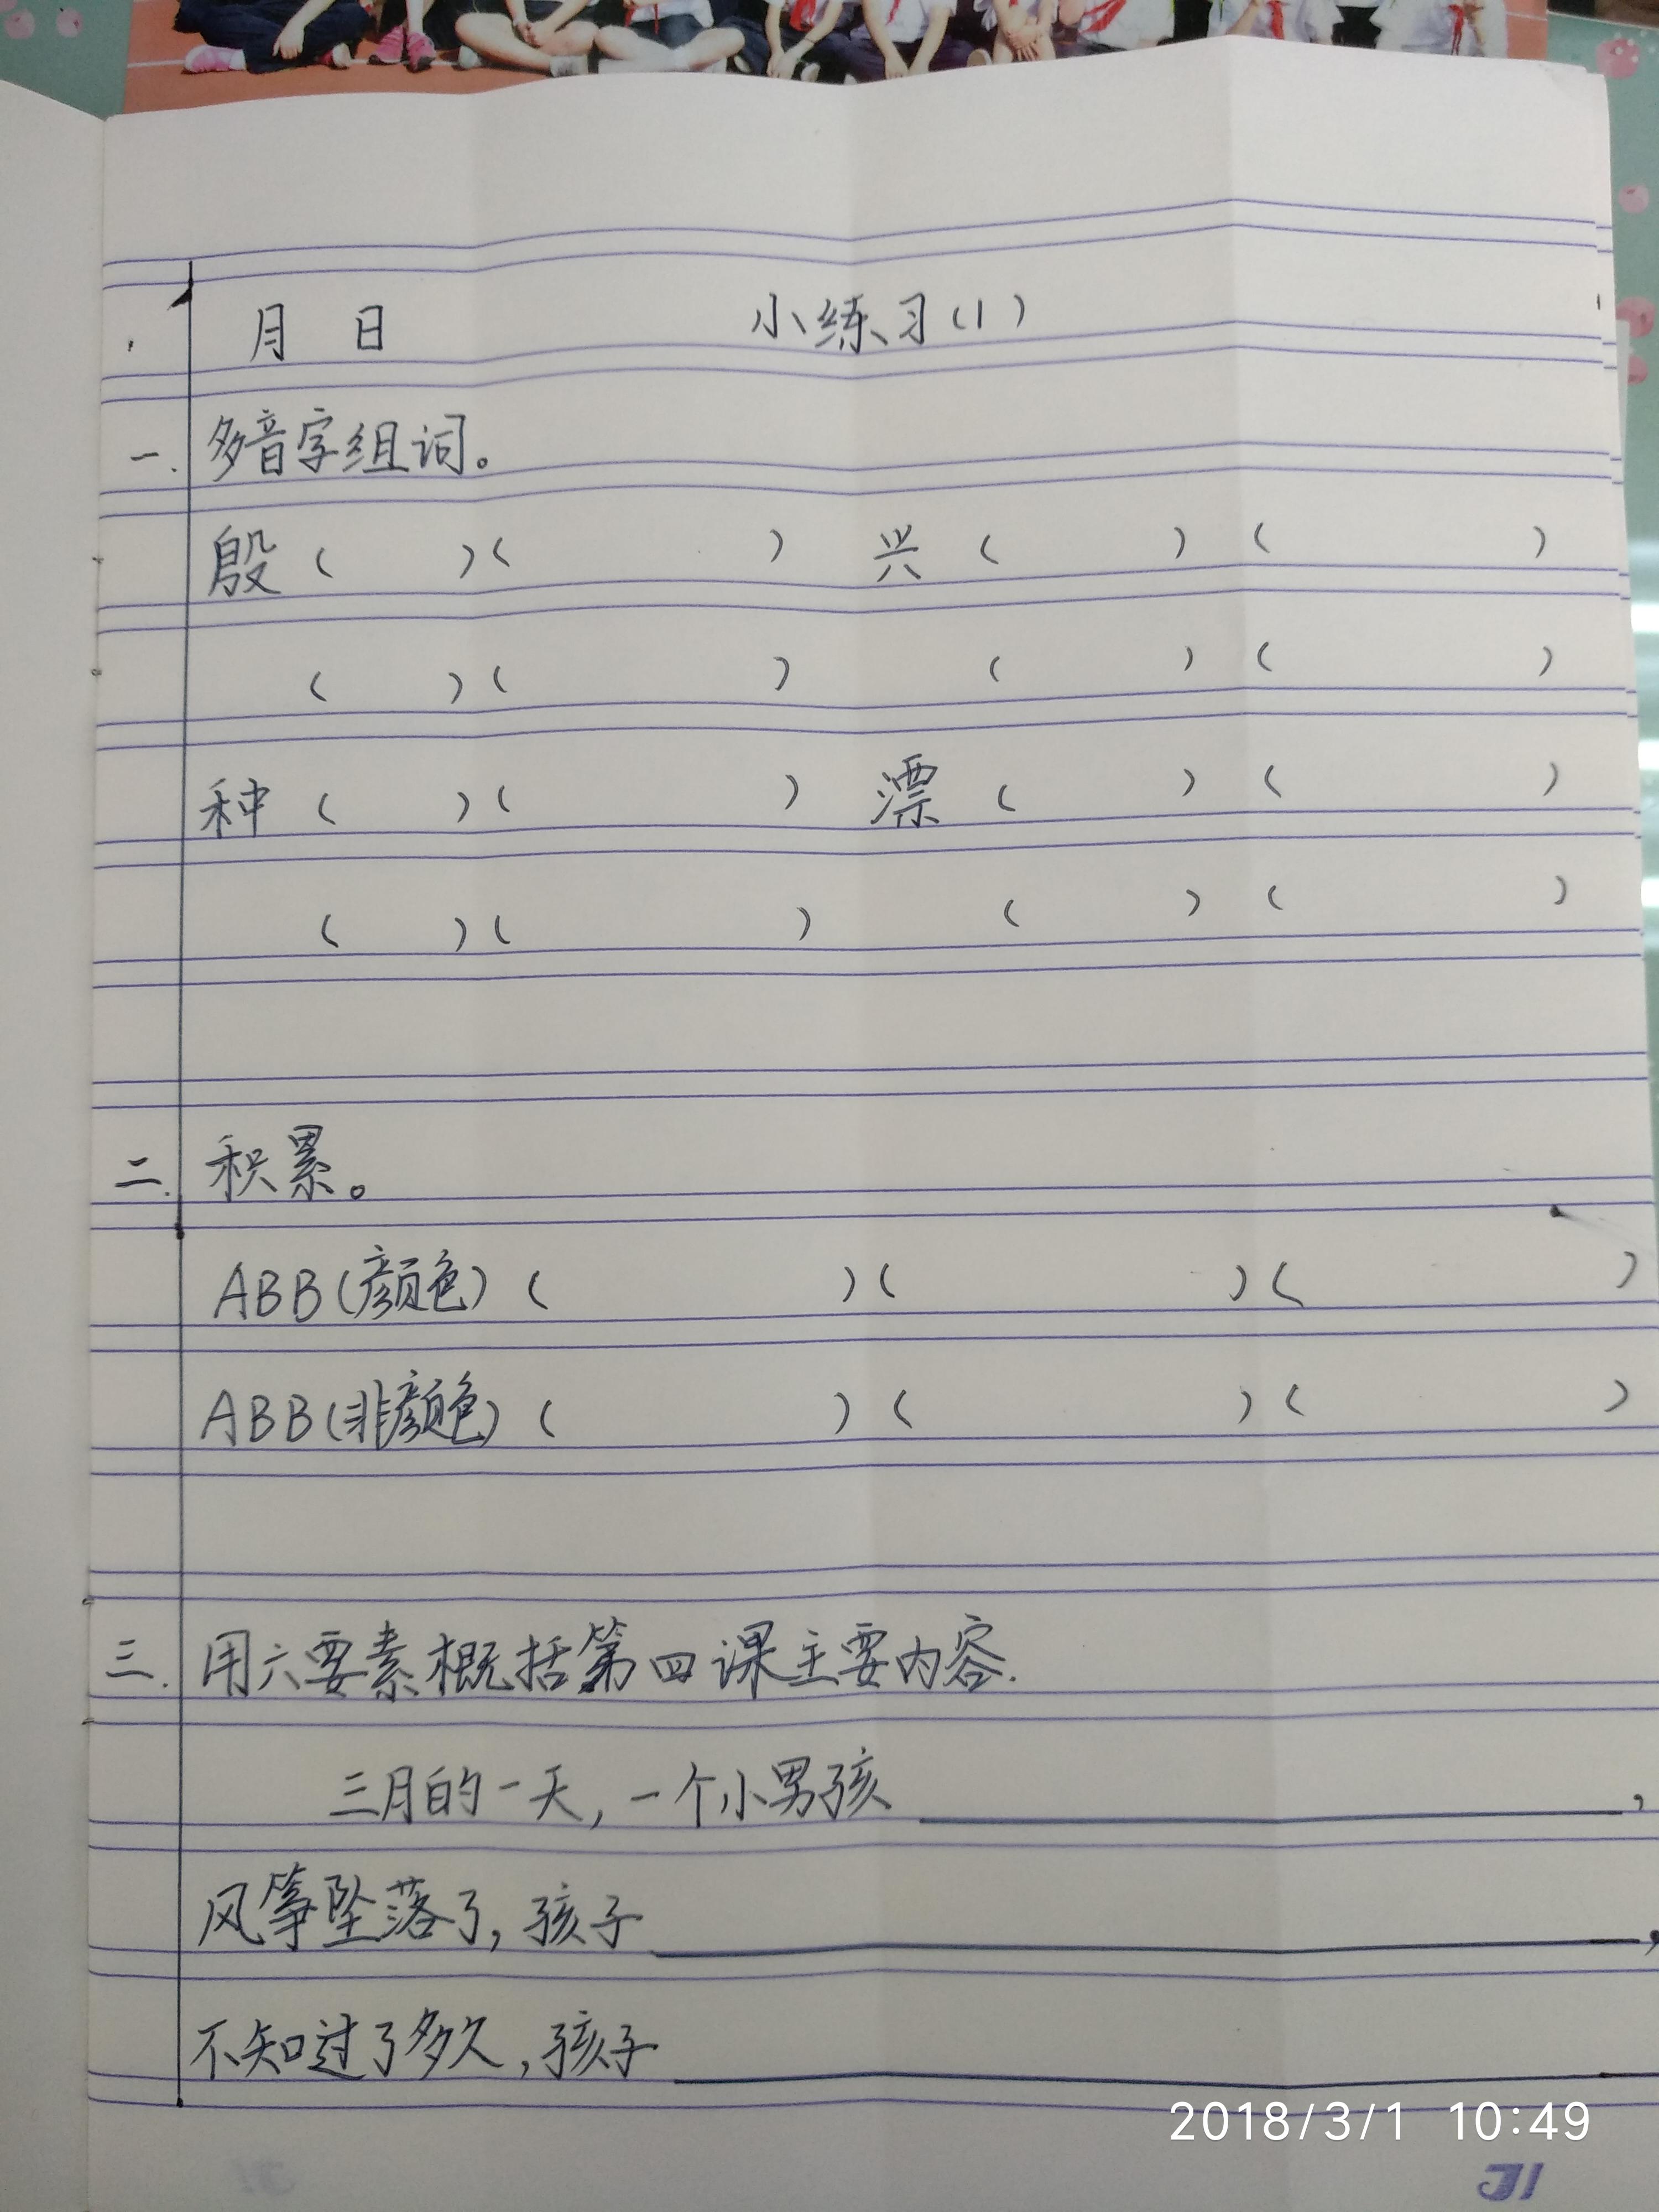 月 日 小练习(1)
一. 多音字组词。
殷 ( )( ) 兴 ( ) ( )
( )( ) ( ) ( )
种 ( )( ) 漂 ( ) ( )
( )( ) ( ) ( )
二. 积累。
ABB(颜色) ( )( )( )
ABB(非颜色) ( )( )( )
三. 用六要素概括第四课主要内容.
三月的一天, 一个小男孩 ________ ,
风筝坠落了, 孩子 ________ ,
不知过了多久, 孩子 ________
2018/3/1 10:49